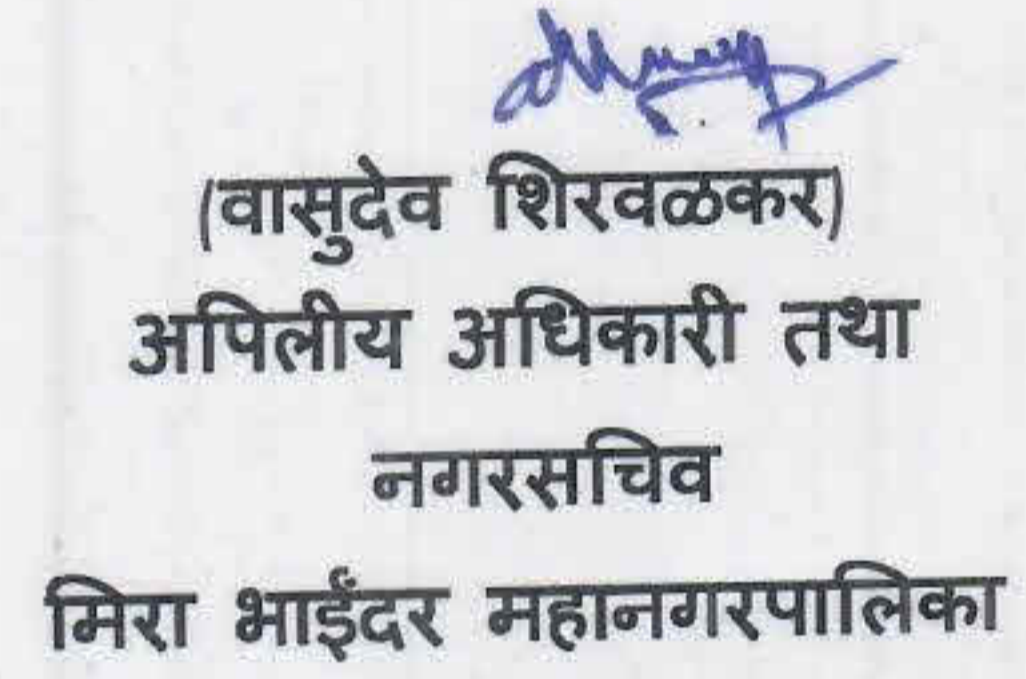 (वासुदेव शिरवळकर)
अपिलीय अधिकारी तथा
नगरसचिव
मिरा भाईंदर महानगरपालिका